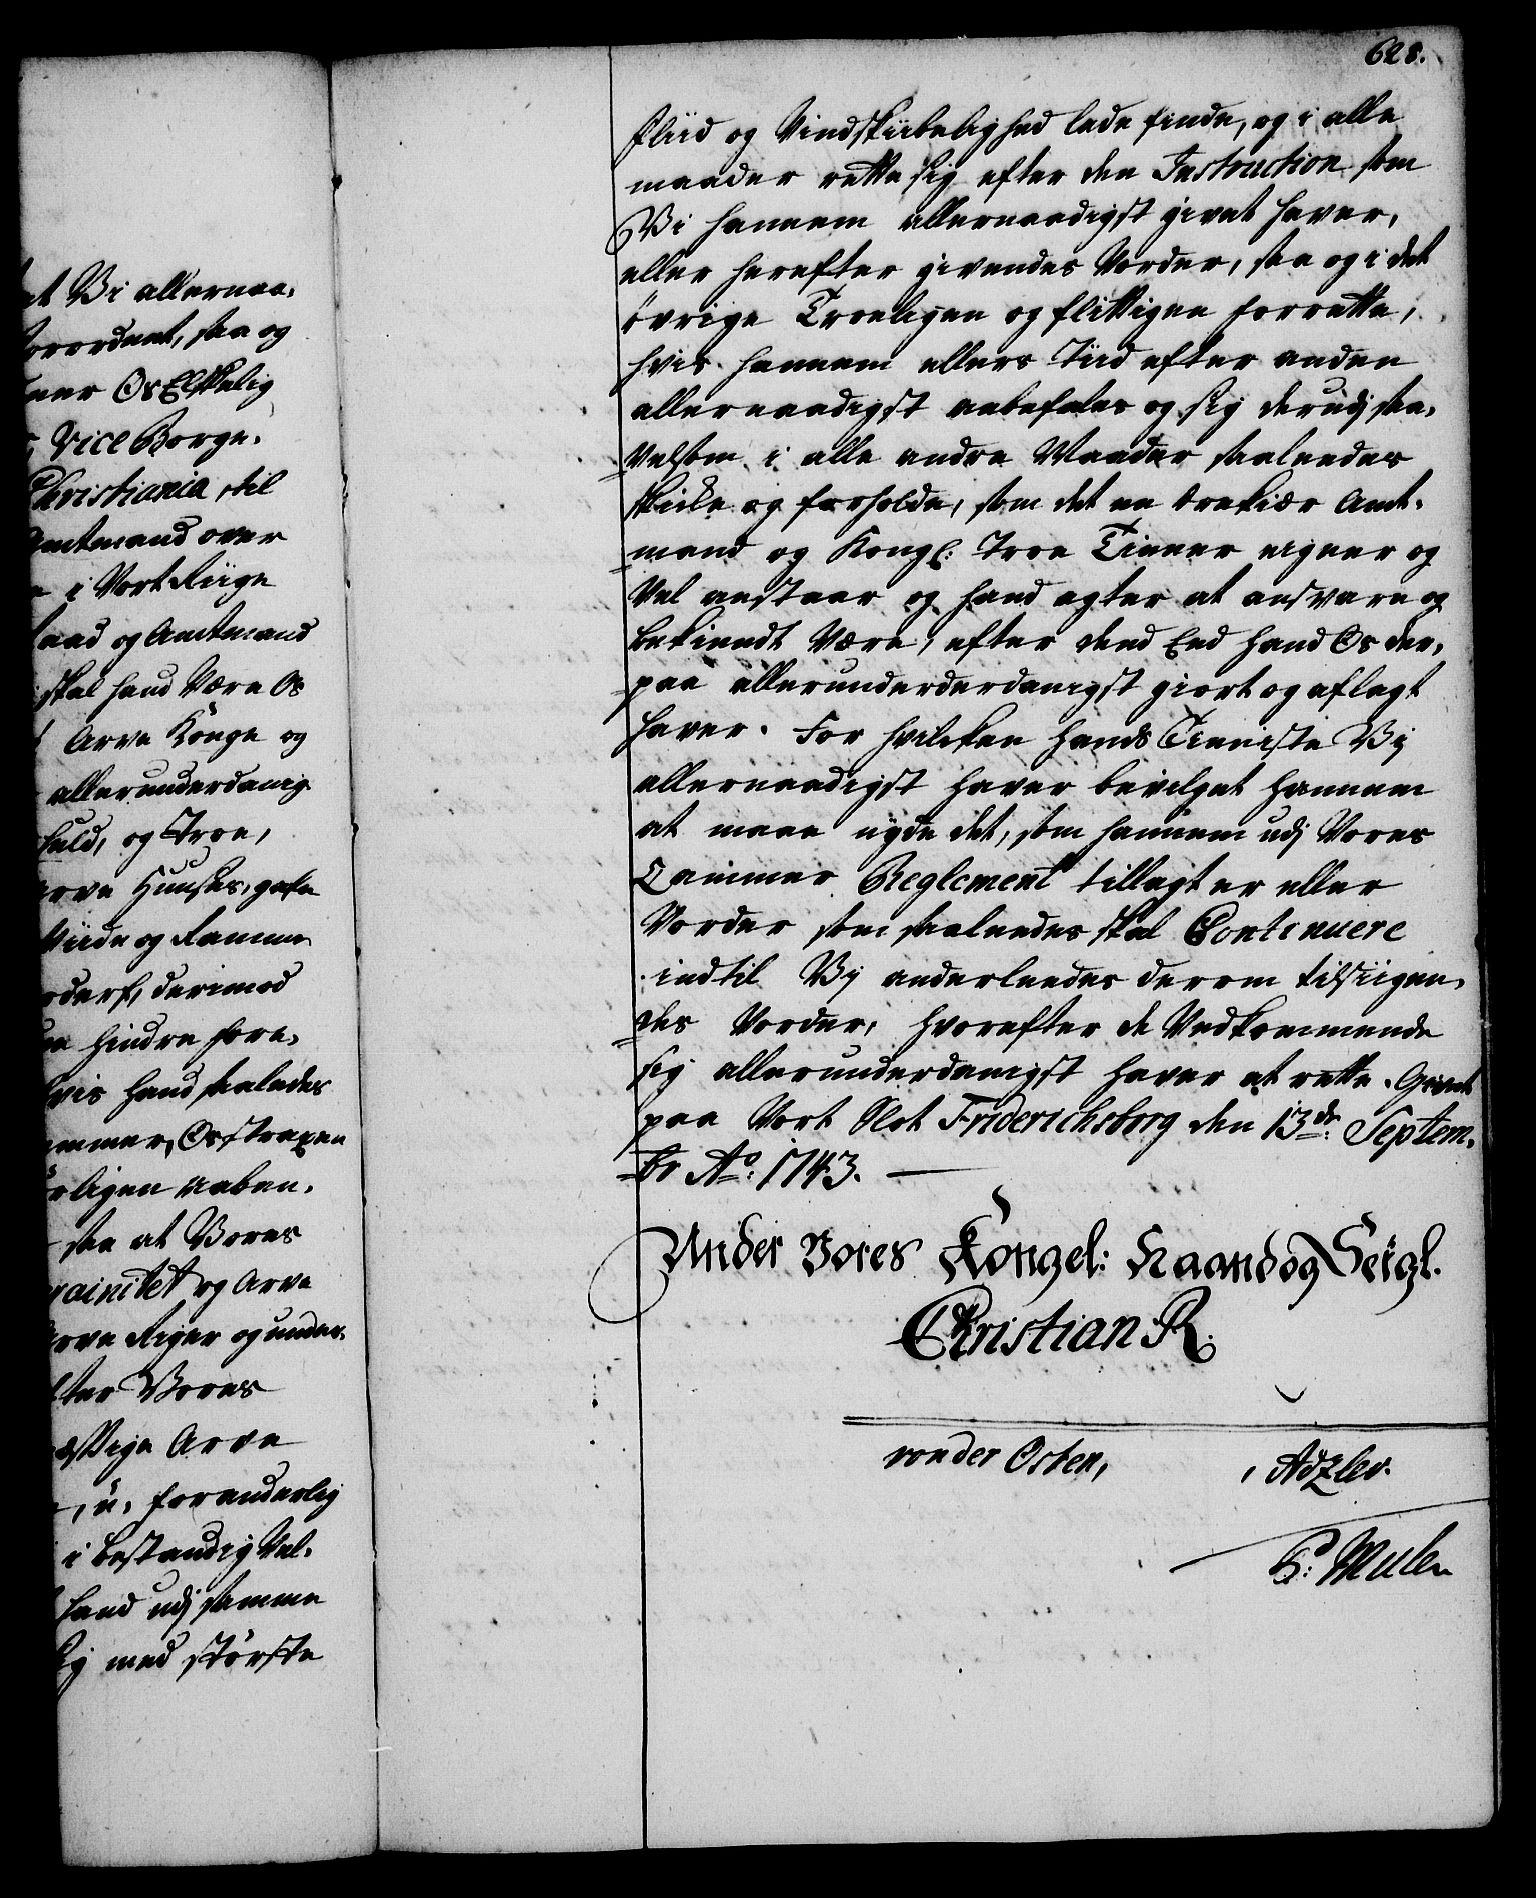 628.
et Vi allernaa-
orordnet, saa og
ner Os Elskelig
Vice Borge-
Christiania, til
Amtmand over
i Vort Riige
aad og Amtmand
skal hand være Os
Arve Konge og
allerunderdanig
huld, og troe,
rve Huuses, gafn
viide og Ramme
derf, derimod
hindre fore-
vis hand saaledes
emmer, Os straxen
rligen aaben-
saa at Vores
rainitet og Arve
rve Riger og under-
fter Vores
ssige Arve
u- foranderlig
i bestandig Vel-
hand udj samme
sig med største
fliid og Vindskiibelighed lade finde, og i alle
maader rette sig efter den Instruction som
Vi hannem allernaadigst givet haver,
eller herefter givendes Vorder, saa og i det
övrige Troeligen og flittigen forrette,
hvis hannem ellers Tiid efter anden
allernaadigst anbefales og sig derudj saa-
velsom i alle andre Maader saaleedes
skicke og forholde, som det en oprigtig Amt-
mand og Kongl: Troe Tiener eigner og
vel anstaar og hand agter at ansvare og
bekiendt være, efter dend Eed hand Os der-
paa allerunderderdanigst giort og aflagt
haver. For hvilcken hands Tieniste Vij
allernaadigst haver bevilget hannem
at maae nyde det, som hannem udj Vores
Cammer Reglement tillagt er eller
Vorder som saaleedes skal Continuere
indtil Vij anderleedes derom tilsiigen-
des Vorder, hvorefter de Vedkommende
sig allerunderdanigst haver at rette. Givet
paa Vort Slot Friderichsborg den 13de Septem-
br Ao: 1743.
Under Vores Kongel: Haand og Seigl.
Christian R.
von der Osten, Adzlev.
P: Mule